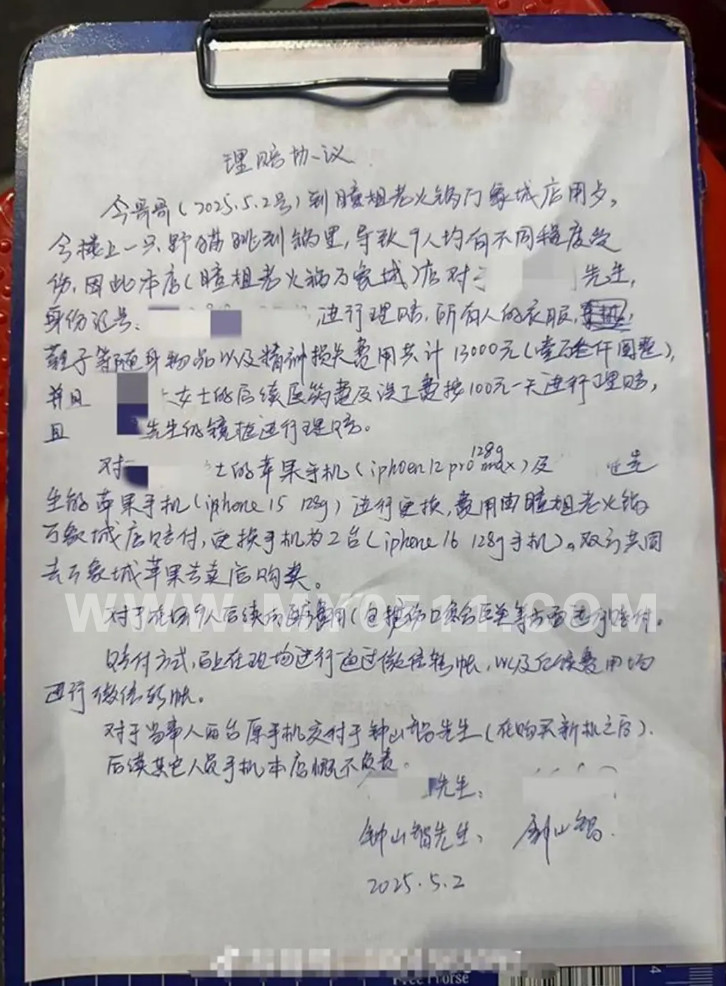 理赔协议
今哥哥(2025.5.2号)到瞳姐老火锅万象城店用歺,
令楼上一只野猫跳到锅里,导致9人均有不同程度受
伤,因此本店(瞳姐老火锅万象城)店对 先生,
身份证号: 进行理赔,所有人的衣服,
鞋子等随身物品以及精神损失费用共计13000元(壹万叁仟圆整),
并且 女士的后续医药费及误工费按100元一天进行理赔,
且 先生的镜框进行理赔。
对 士的苹果手机(iphoen 12 pro max 128g)及 先
生的苹果手机(iphone 15 128g)进行更换,费用由瞳姐老火锅
万象城店赔付,更换手机为2台(iphone 16 128g手机)。双方共同
去万象城苹果专卖店购买。
对于在场9人后续内 费用(包括伤口愈合 等方面进行赔付。
赔付方式,以上在现场进行通过微信转帐,以及后续费用均
进行微信转帐。
对于当事人两台原手机交付于钟山智先生(在购买新机之后).
后续其它人员手机本店概不负责。
先生:
钟山智先生: 钟山智
2025.5.2
WWW.MY0511.COM